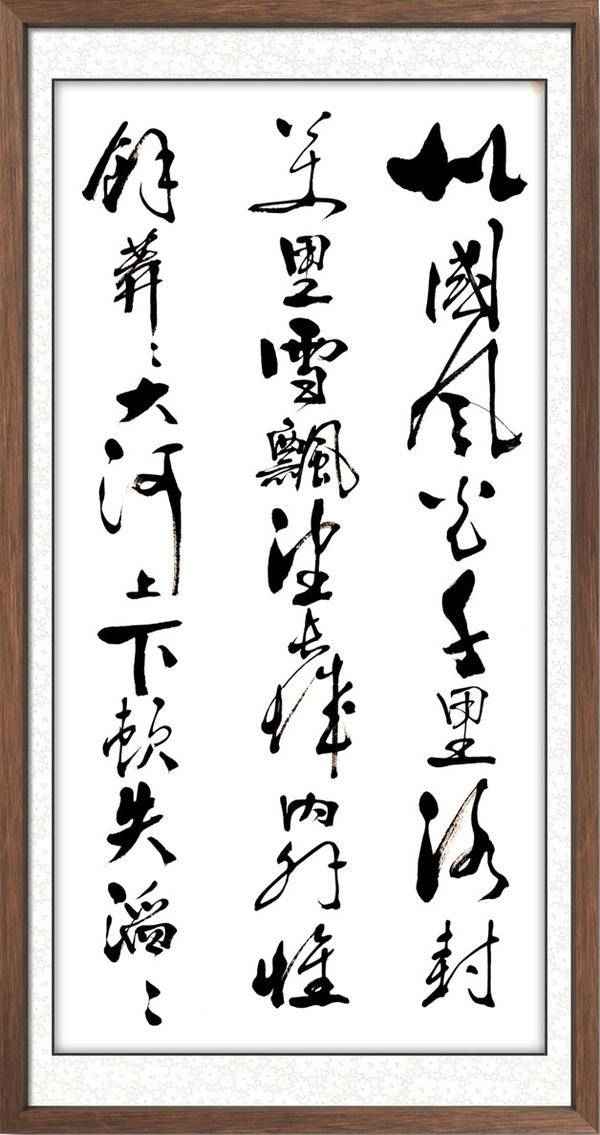 北國風光千里冰封
萬里雪飄望長城内外惟
餘莽々大河上下頓失滔々